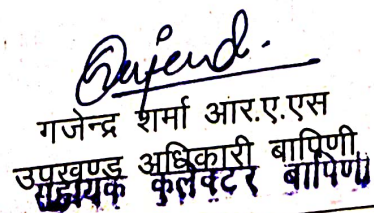 Gajend.
गजेन्द्र शर्मा आर.ए.एस
उपखण्ड अधिकारी बापिणी
सहायक कलेक्टर बापिणी